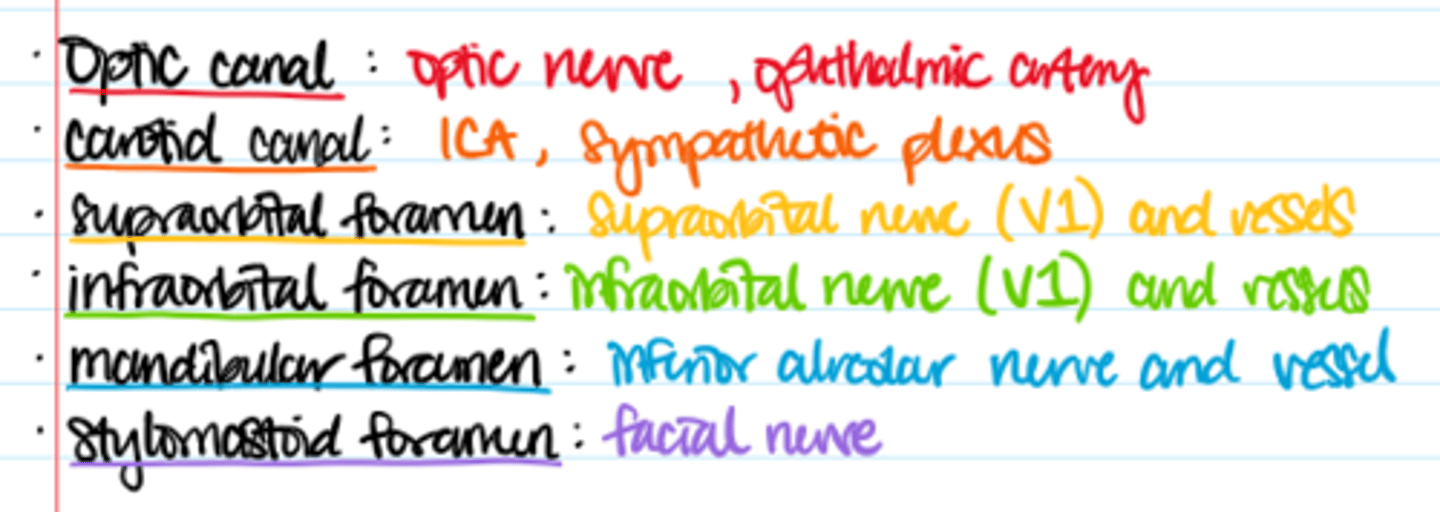 · Optic canal : optic nerve , ophthalmic artery
· carotid canal : ICA , sympathetic plexus
· supraorbital foramen : supraorbital nerve (V1) and vessels
· infraorbital foramen : infraorbital nerve (V1) and vessels
· mandibular foramen : inferior alveolar nerve and vessel
· stylomastoid foramen : facial nerve